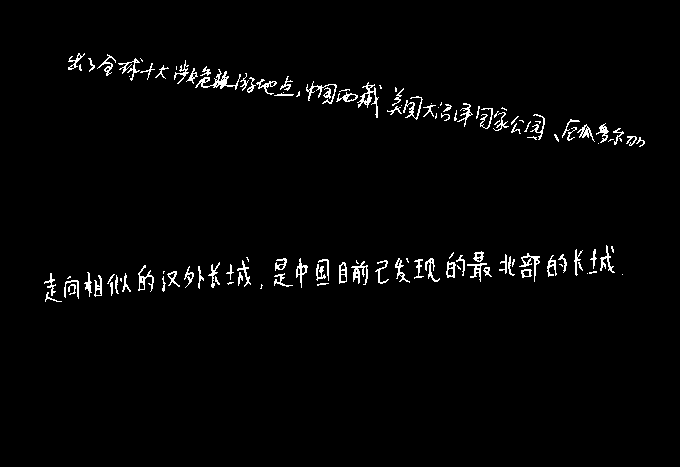 出了全球十大涉危旅游地点,中国西藏 美国大沼泽国家公园、厄瓜多尔加
走向相似的汉外长城,是中国目前已发现的最北部的长城.